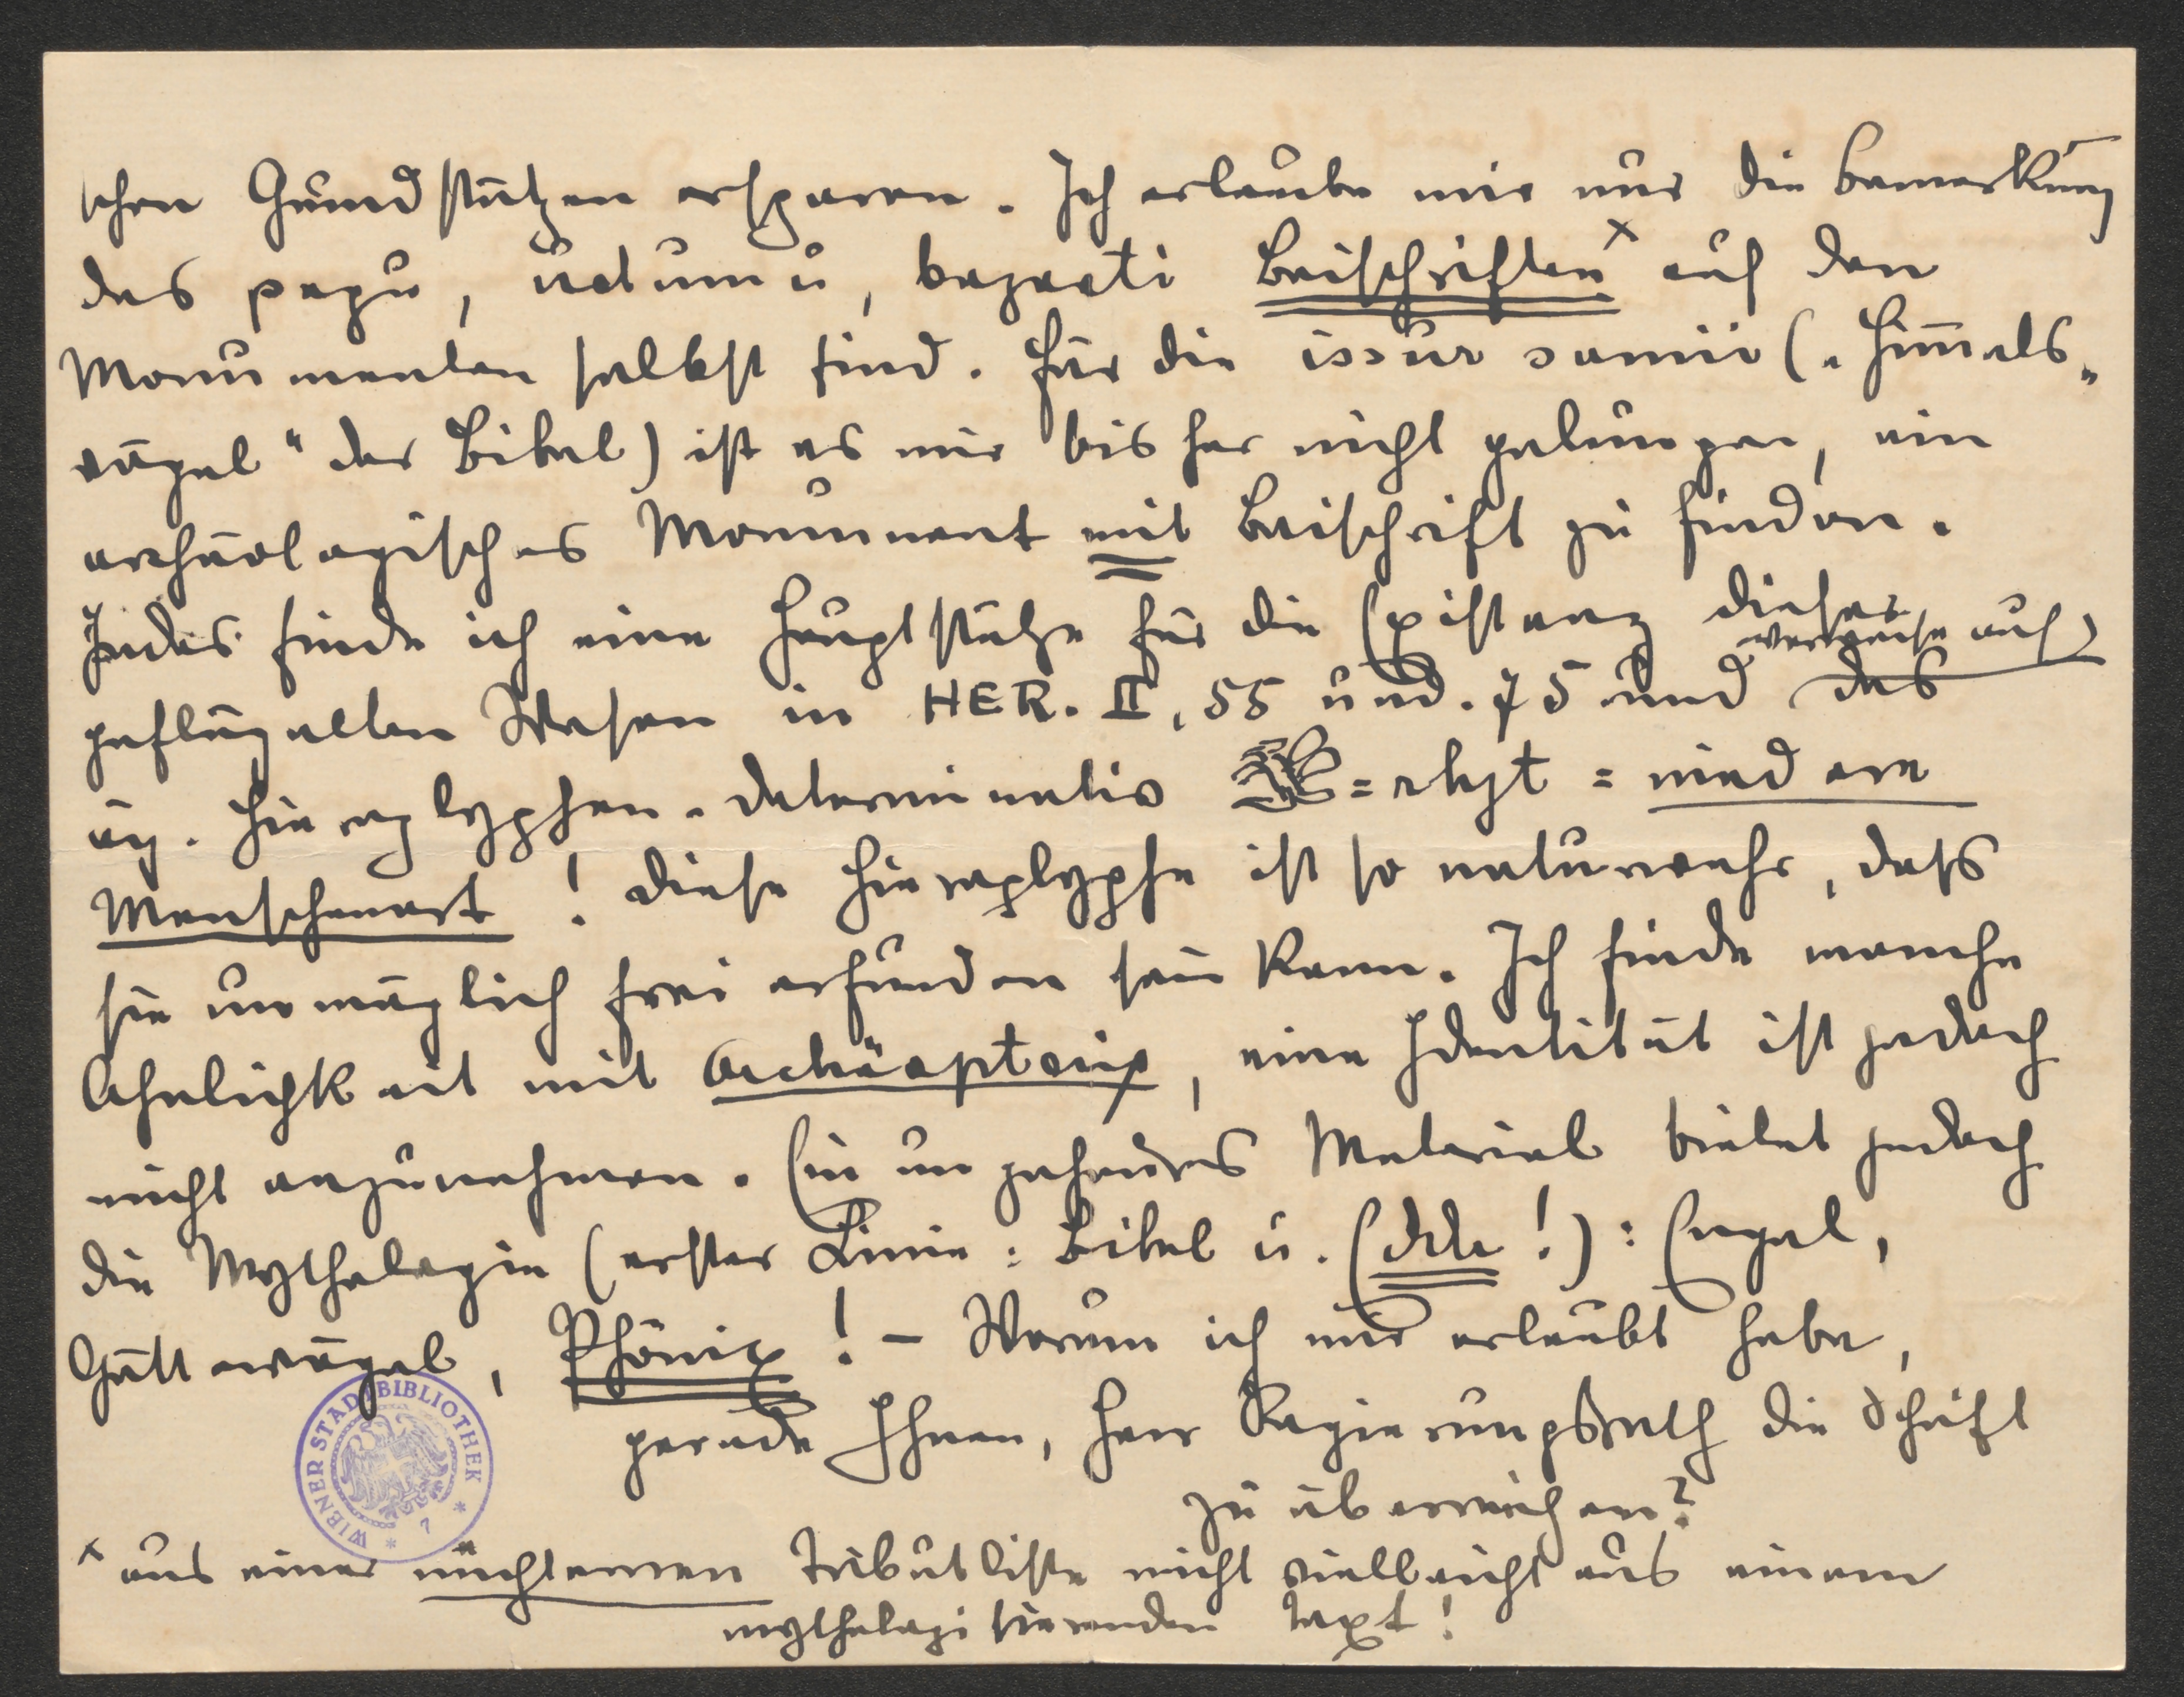 schen Grundstützen ersparen. Ich erlaube mir nur die Bemerkung
das pagu, udumu, baziati Beischriften x auf den
Monumenten selbst sind. Für die issur samii („Himmels-
vögel“ der Bibel) ist es mir bisher nicht gelungen, ein
archäologisches Monument mit Beischrift zu finden.
Indes finde ich eine Hauptstütze für die Existenz dieser
geflügelten Wesen in HER. II, 55 und. 75 und das verweise auf
äg. Hieroglyphen-Determinativ = rhyt = niedere
Menschenart! Diese Hieroglyphe ist so naturwahr, dass
sie unmöglich frei erfunden sein kann. Ich finde manche
Ähnlichkeit mit Archäopterix, eine Identität ist jedoch
nicht anzunehmen. Ein ungeheures Material bietet jedoch
die Mythologie (erster Linie: Bibel u. Edda!): Engel,
Göttervögel, Phönix! – Warum ich mir erlaubt habe,
gerade Ihnen, Herr Regierungsrath die Schrift
zu überreichen?
x aus einer nüchternen Tributliste nicht vielleicht aus einem
mythologisierenden Text!
WIENER STADTBIBLIOTHEK * 7 *